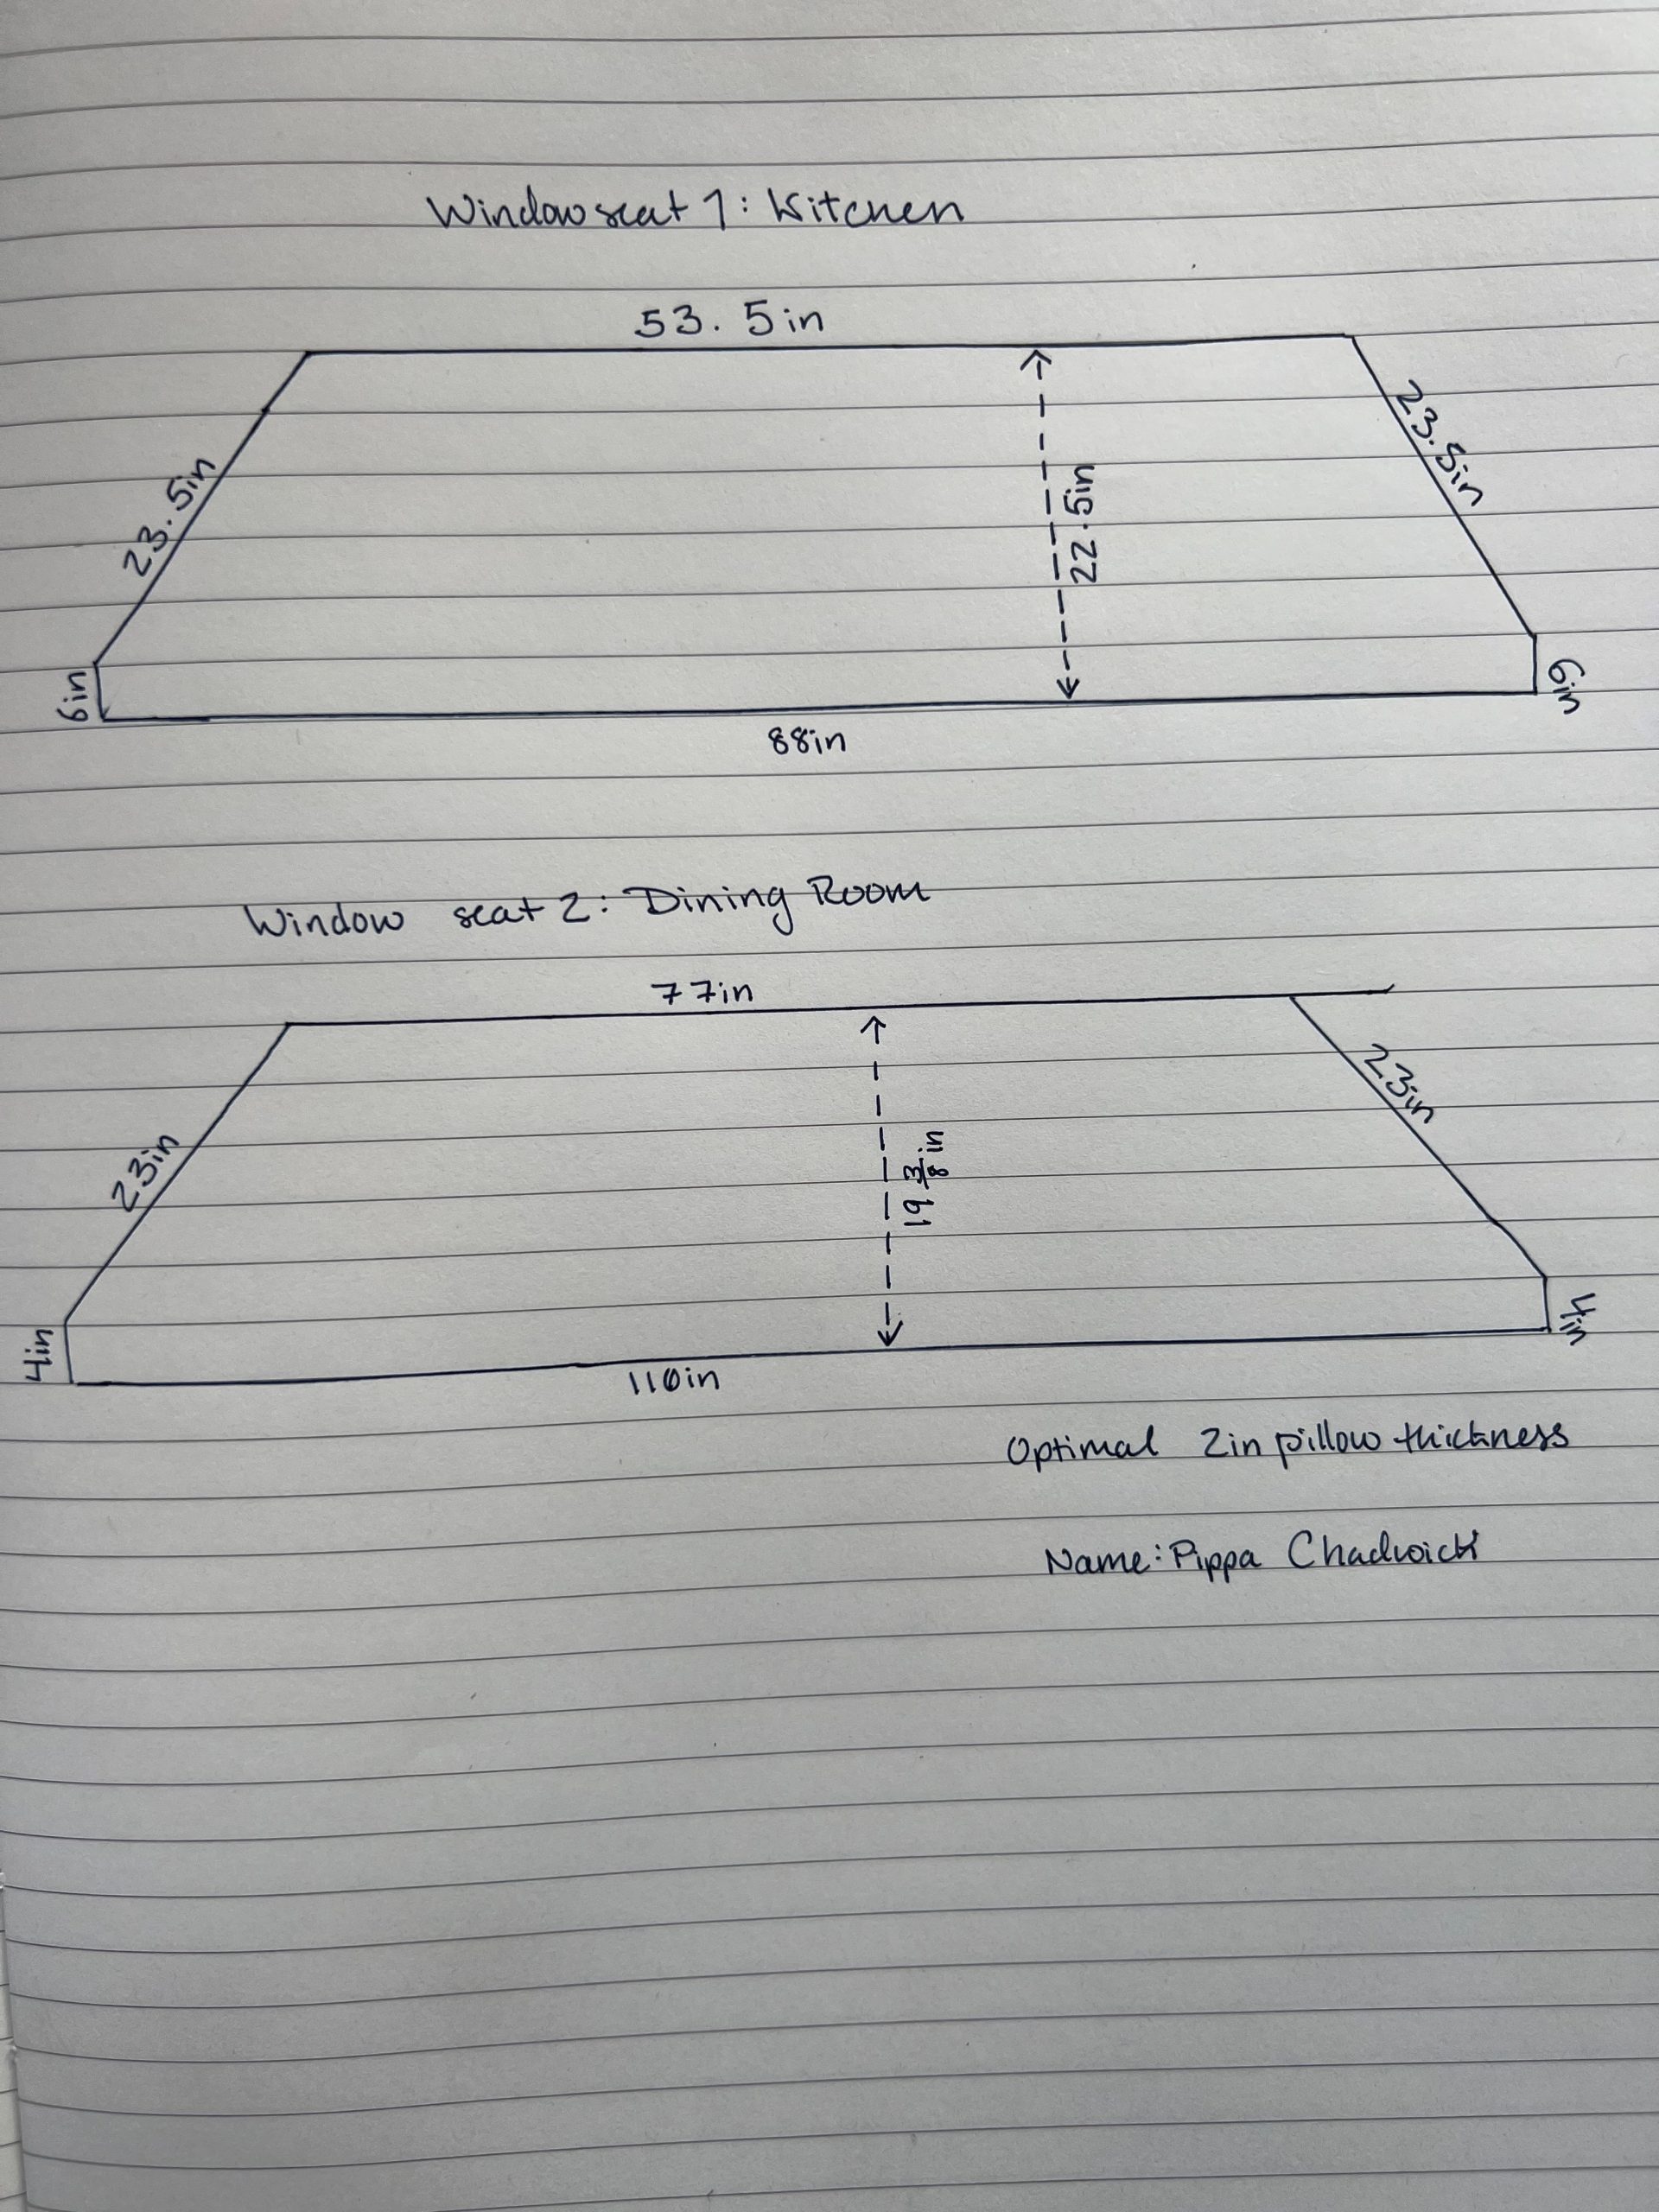 Window seat 1: Kitchen
53.5in
23.5in
23.5in
22.5in
6in
6in
88in
Window seat 2: Dining Room
77in
23in
23in
19 3/8 in
4in
4in
110in
Optimal 2in pillow thickness
Name: Pippa Chadwick